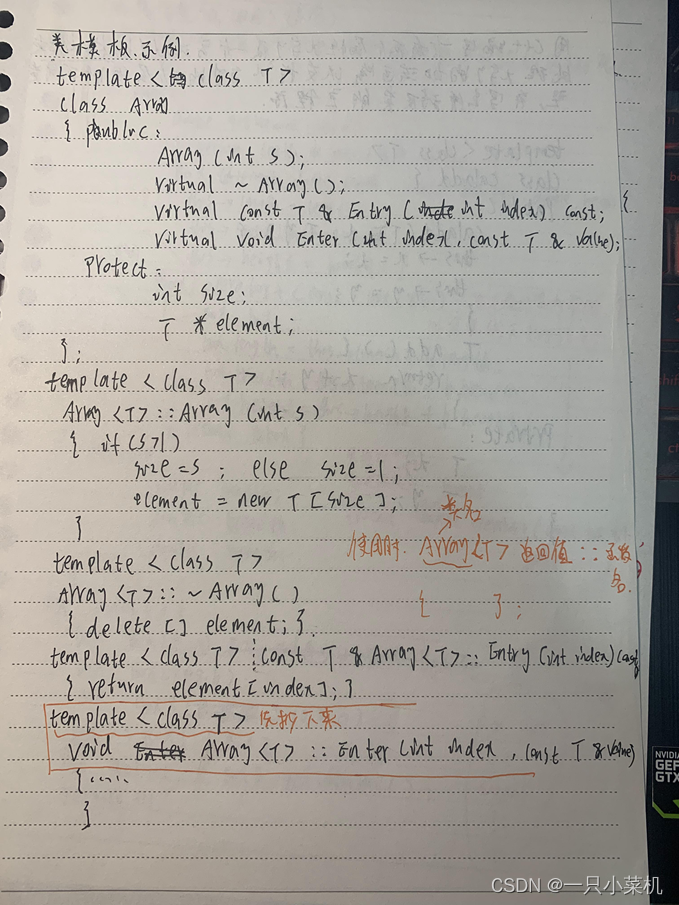 类模板示例.
template < class T>
class Array
{ public:
Array (int s);
virtual ~ Array ();
virtual const T & Entry (int index) const;
virtual void Enter (int index, const T & value);
Protect:
int size;
T * element;
};
template < class T>
Array <T>:: Array (int s)
{ if (s>1)
size = s ; else size = 1;
element = new T [size];
}
类名
使用时. Array<T> 返回值 :: 函数名.
{ };
template < class T>
Array <T>:: ~ Array ( )
{ delete [] element; }.
template < class T> const T & Array <T>:: Entry (int index) const
{ return element [index]; }
template < class T>
void Enter Array <T> :: Enter (int index , const T & value)
{ .....
}
NVIDIA
GEF
GTX
CSDN @一只小菜机